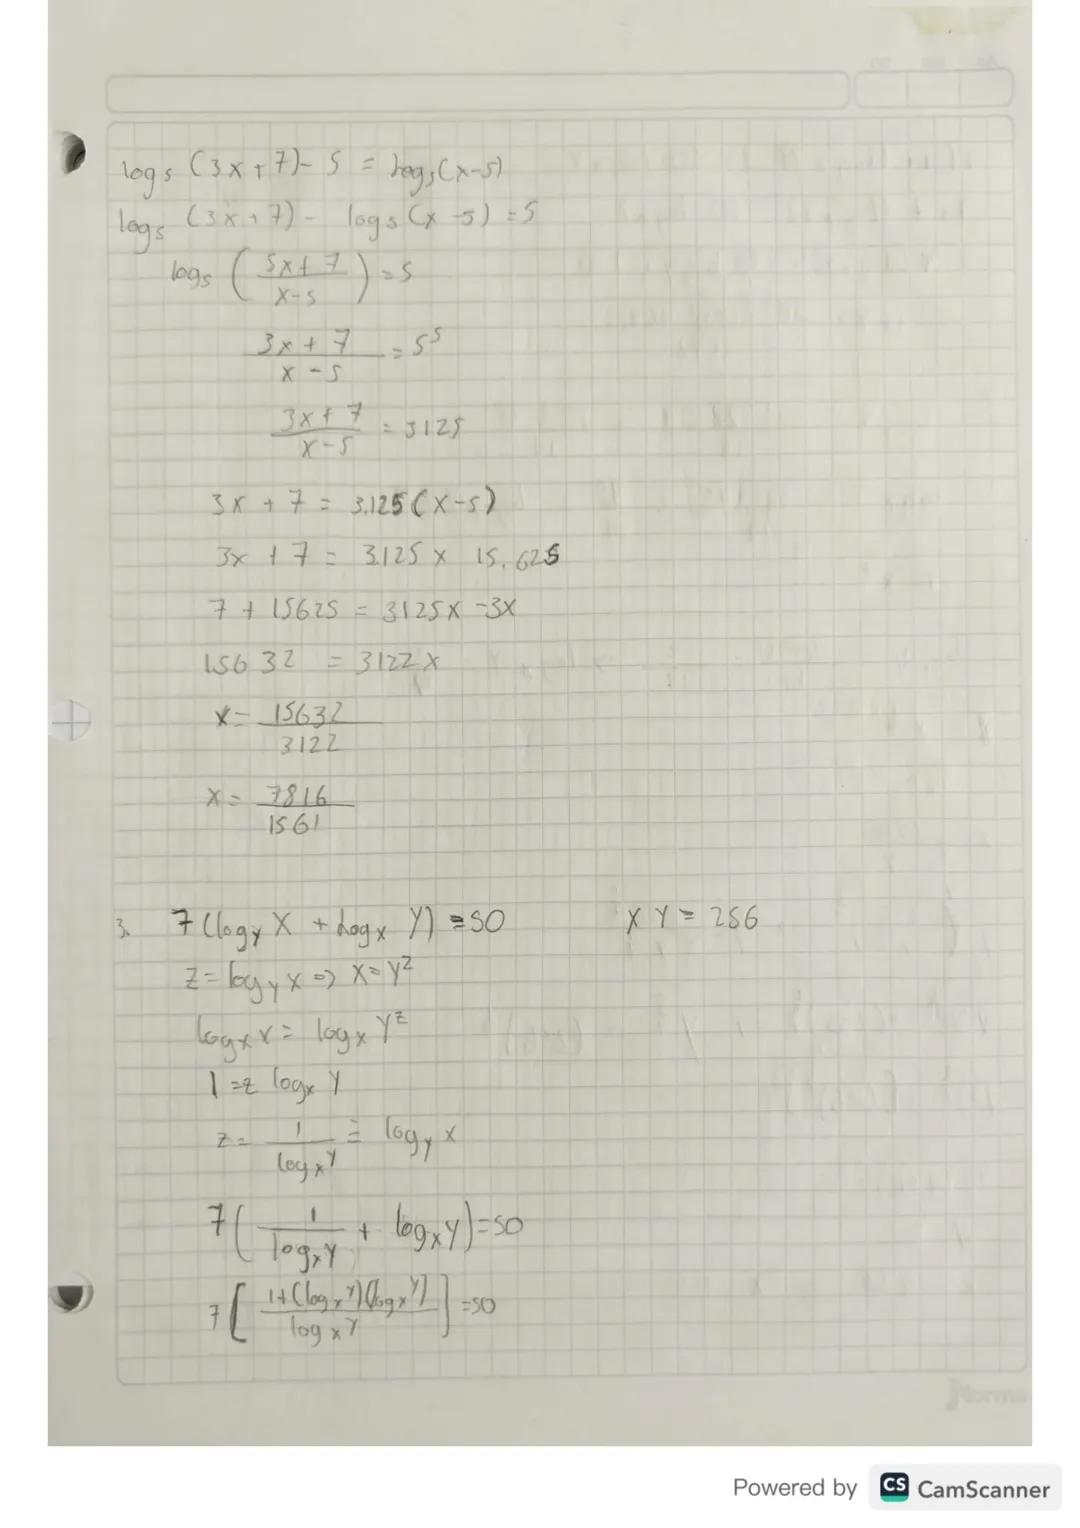 log₅ (3x + 7) - 5 = log₅ (x-5)
log₅ (3x + 7) - log₅ (x - 5) = 5
log₅ ( 5x + 7 / x - 5 ) = 5
3x + 7 / x - 5 = 5⁵
3x + 7 / x - 5 = 3125
3x + 7 = 3.125 (x-5)
3x + 7 = 3.125 x 15.625
7 + 15625 = 3125x - 3x
15632 = 3122x
x = 15632 / 3122
x = 7816 / 1561
3. 7 (log_y X + log_x Y) = 50 X Y = 256
z = log_y x => x = y^z
log_x x = log_x y^z
1 = z log_x y
z = 1 / log_x y = log_y x
7 ( 1 / log_x y + log_x y ) = 50
7 [ 1 + (log_x y)(log_x y) / log_x y ] = 50
Norma
Powered by CS CamScanner